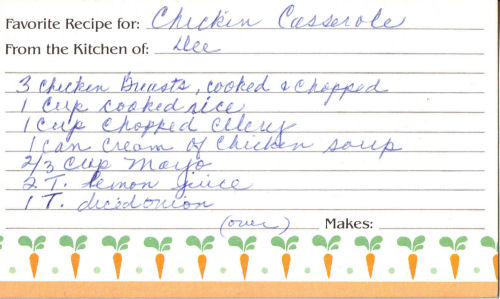 Favorite Recipe for: Chicken Casserole
From the Kitchen of: Dee
3 Chicken Breasts, cooked & Chopped
1 Cup cooked rice
1 Cup Chopped Celery
1 Can Cream of Chicken soup
2/3 Cup Mayo
2 T. lemon juice
1 T. diced onion
(over) Makes: